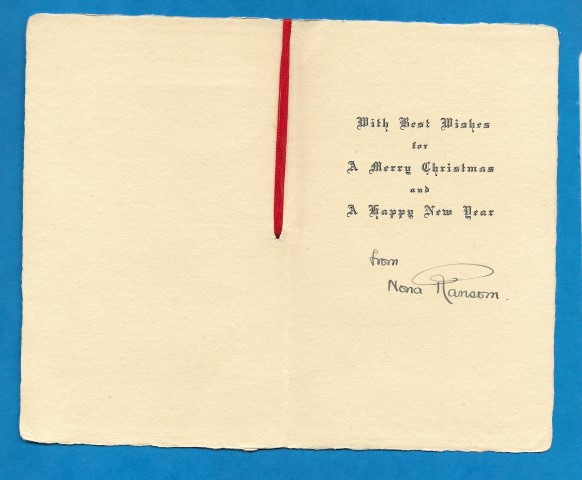 With Best Wishes
for
A Merry Christmas
and
A Happy New Year
from
Nona Ransom.